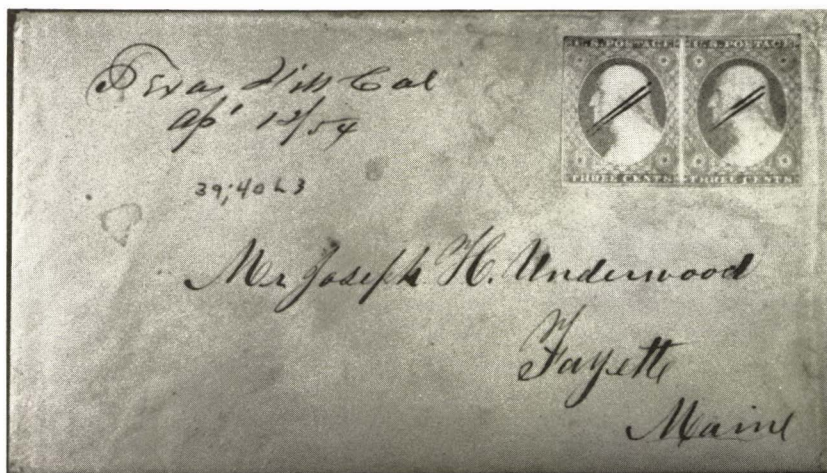 Texas Hill Cal
Ap' 12/54
39; 40 L 3
U.S. POSTAGE U.S. POSTAGE
THREE CENTS THREE CENTS
Mr Joseph H. Underwood
Fayette
Maine